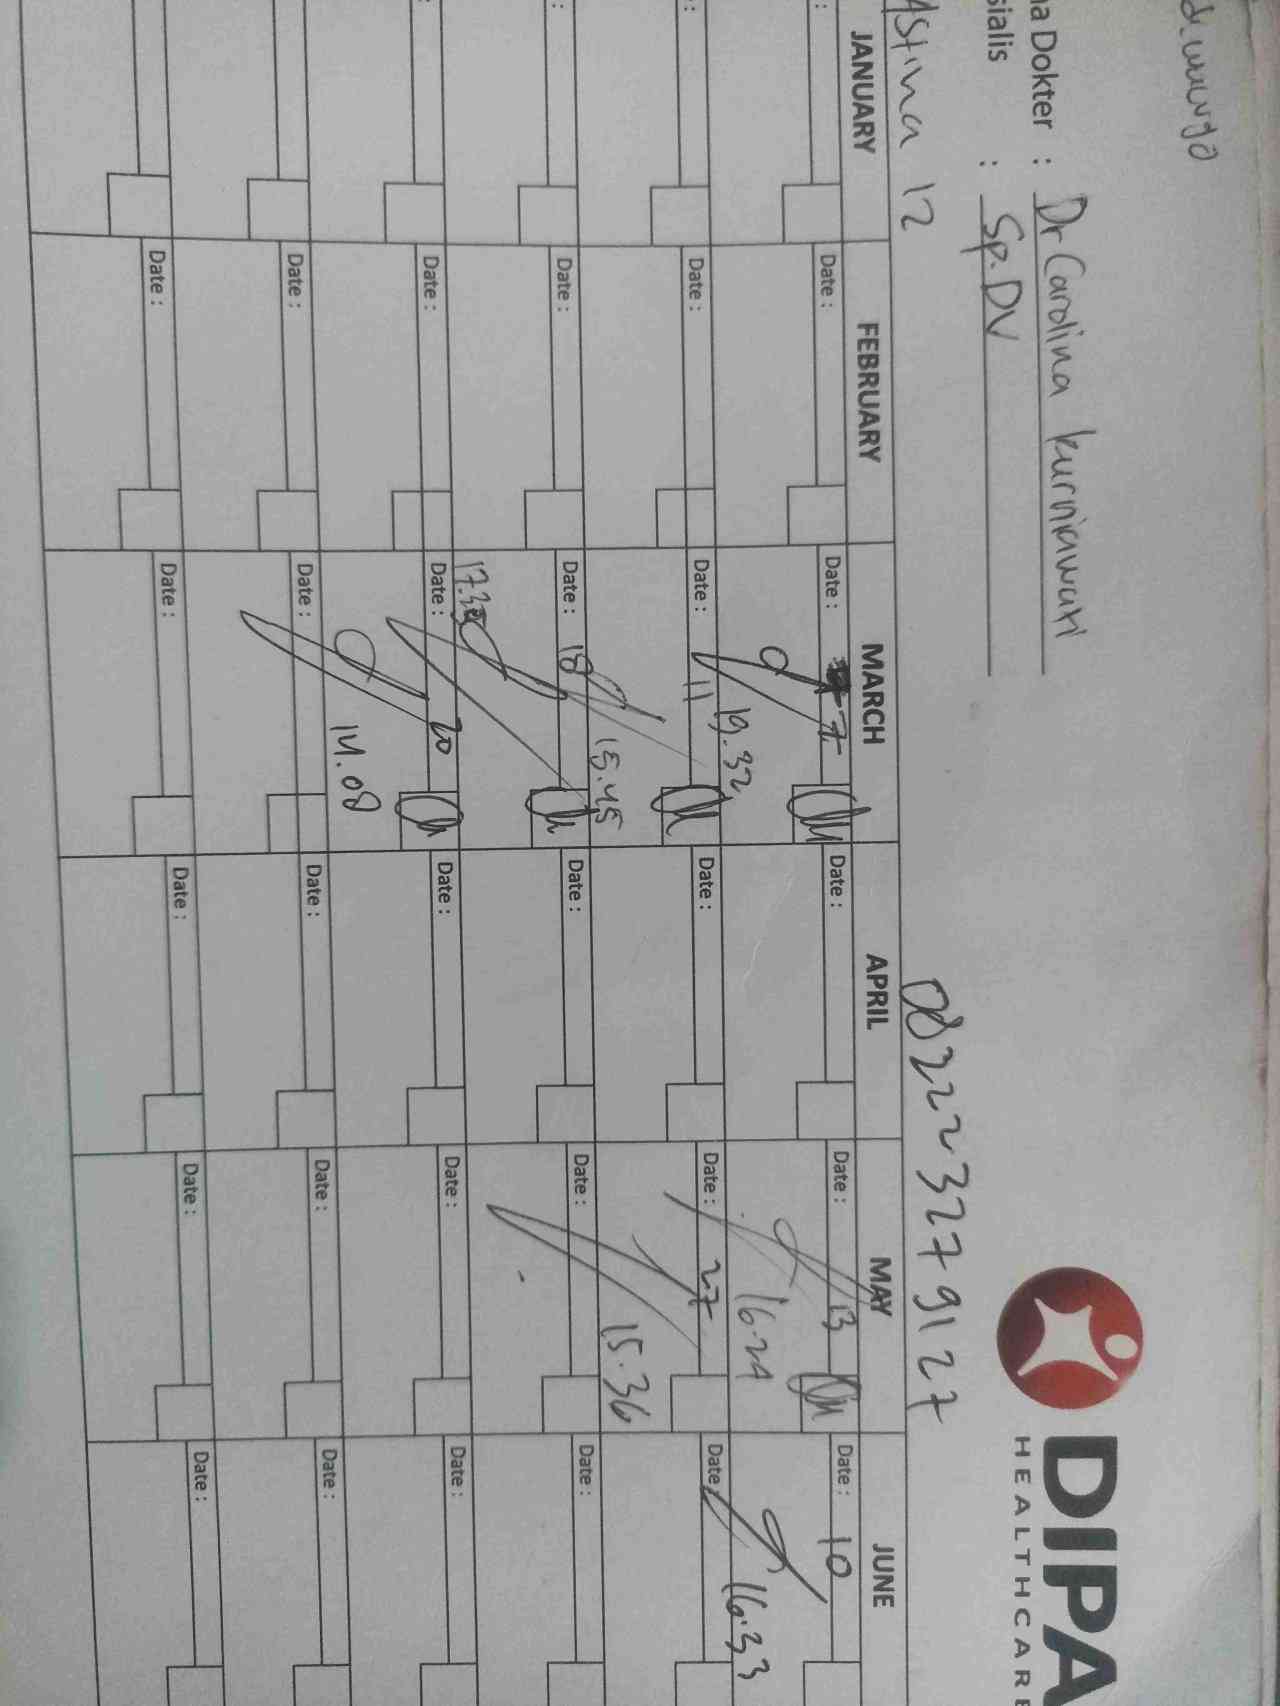 di muurga
na Dokter : Dr Carolina kurniawati
sialis : Sp.DV
DIPA
HEALTHCARE
Astina 12
082223279127
JANUARY FEBRUARY MARCH APRIL MAY JUNE
: Date : Date : 7 Date : Date : 13 Date : 10
19.32 16.24 16.33
: Date : Date : 11 Date : Date : 27 Date
15.45 15.36
: Date : Date : 18 Date : Date : Date :
17.30
: Date : Date : 20 Date : Date : Date :
14.08
Date : Date : Date : Date : Date :
Date : Date : Date : Date : Date :